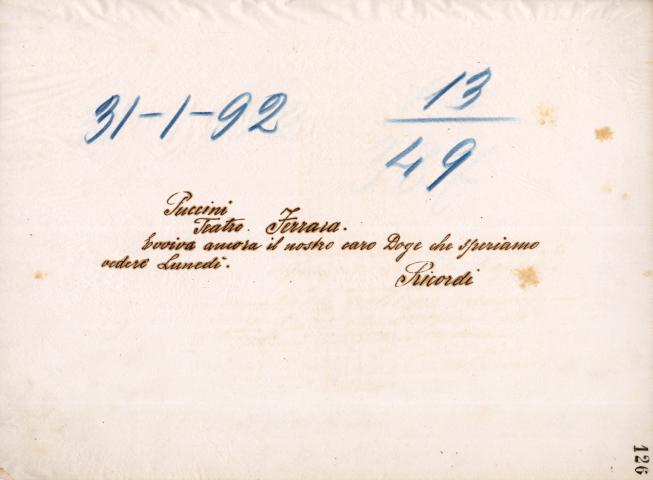 31-1-92
13
49
Puccini
Teatro. Ferrara.
Evviva ancora il nostro caro Doge che speriamo
vedere Lunedì.
Ricordi
126